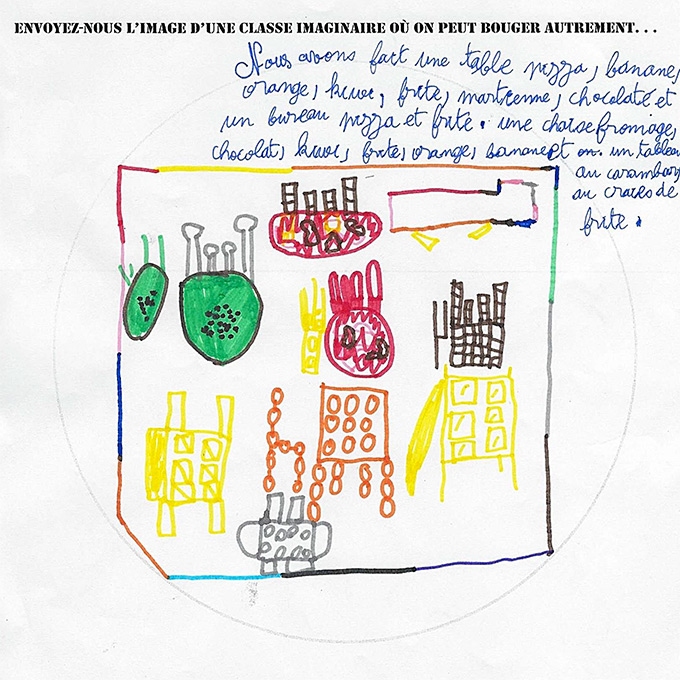 ENVOYEZ-NOUS L'IMAGE D'UNE CLASSE IMAGINAIRE OÙ ON PEUT BOUGER AUTREMENT...
Nous avons fait une table pizza, banane,
orange, kiwi, frite, martienne, chocolaté et
un bureau pizza et frite. une chaise fromage,
chocolat, kiwi, frite, orange, banane et on un tableau
au carambar
au craies de
frite.